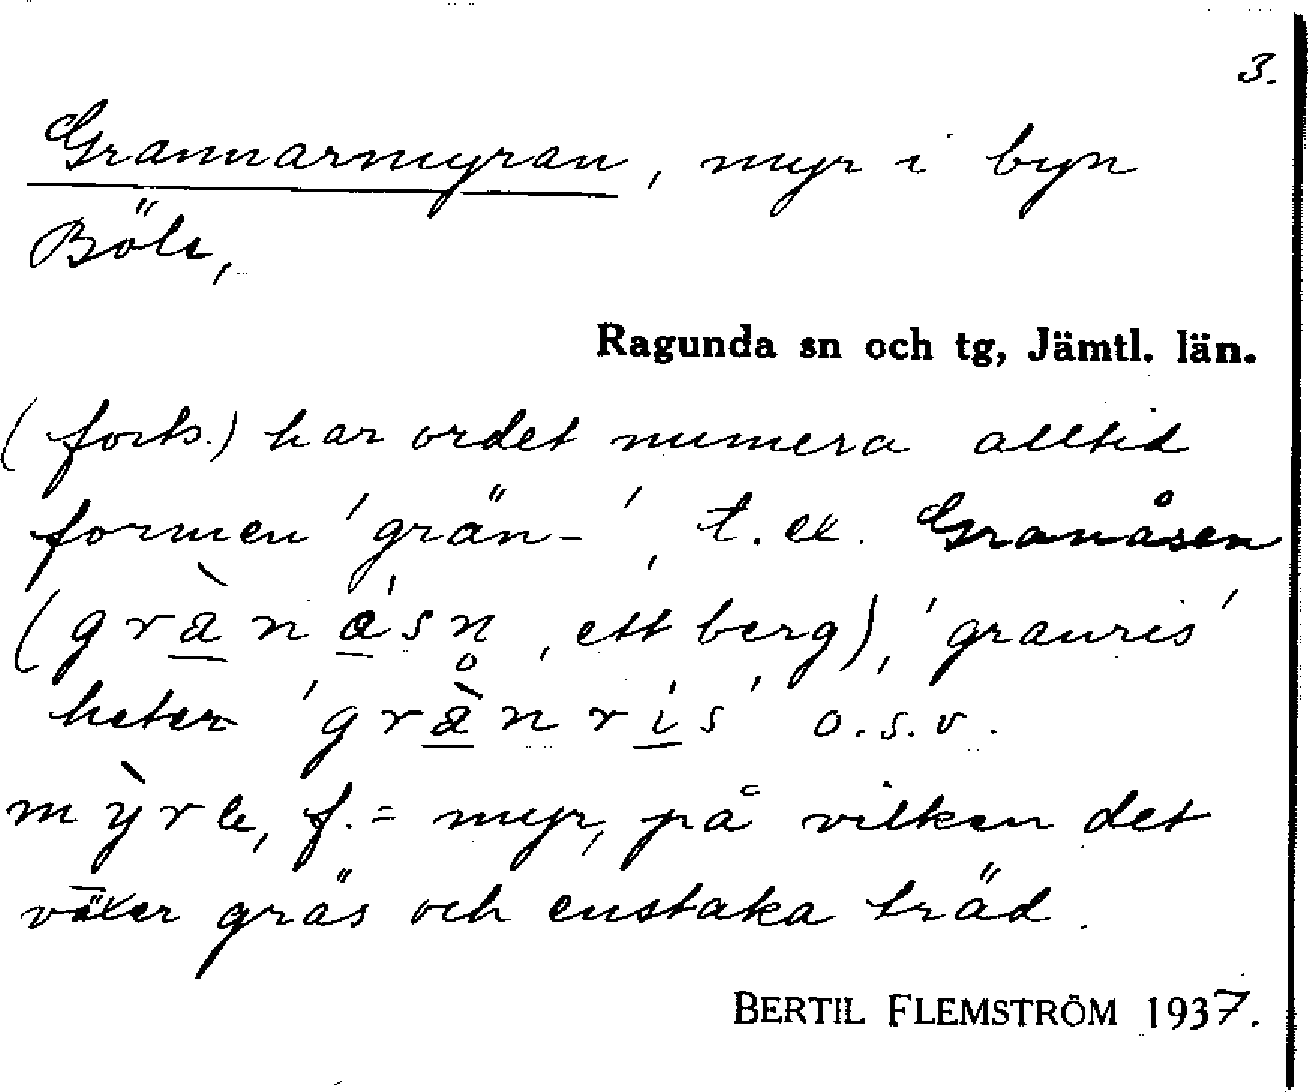 3.
Grannarmyran, myr i byn
Böle,
Ragunda sn och tg, Jämtl. län.
(forts.) har ordet numera alltid
formen 'grän-', t. ex. Granåsen
(grànásn̥, ett berg), 'granris'
heter 'grànrís' o.s.v.
mỳrle, f. = myr, på vilken det
växer gräs och enstaka träd.
BERTIL FLEMSTRÖM 1937.